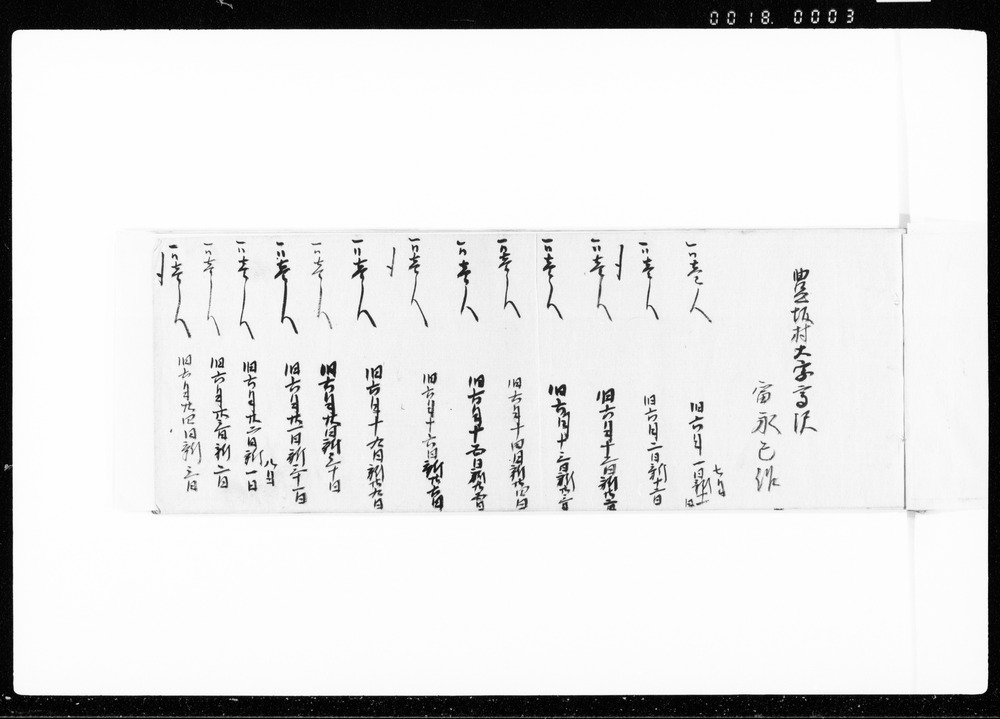 0018. 0003
豊坂村大字高沢
富永己作
一 壱人 旧六月一日新七月十一日
一 壱人 旧六月二日新十二日
一 壱人 旧六月十二日新廿二日
一 壱人 旧六月十三日新廿三日
一 壱人 旧六月十四日新廿四日
一 壱人 旧六月十五日新廿五日
一 壱人 旧六月十六日新廿六日
一 壱人 旧六月十九日新廿九日
一 壱人 旧六月廿日新三十日
一 壱人 旧六月廿一日新三十一日
一 壱人 旧六月廿二日新八月一日
一 壱人 旧六月廿三日新二日
一 壱人 旧六月廿四日新三日